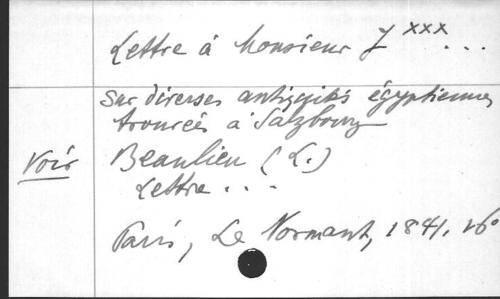 Lettre à Monsieur J xxx...
Sur diverses antiquités égyptiennes
trouvées à Salzbourg
Voir Beaulieu (L.)
Lettre ...
Paris, Le Normant, 1841, 16°